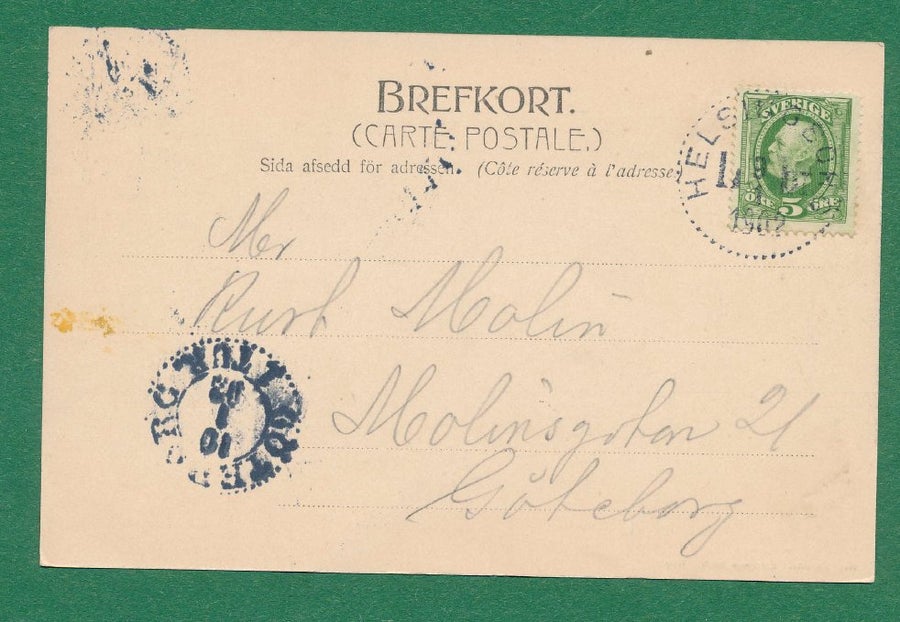 BREFKORT.
(CARTE POSTALE.)
Sida afsedd för adressen. (Côte réserve à l'adresse
SVERIGE
ÖRE 5 ÖRE
HELSINGBORG
1902
Mr
Kurt Molin
Molinsgatan 21
Göteborg
GÖTEBORG
10
1